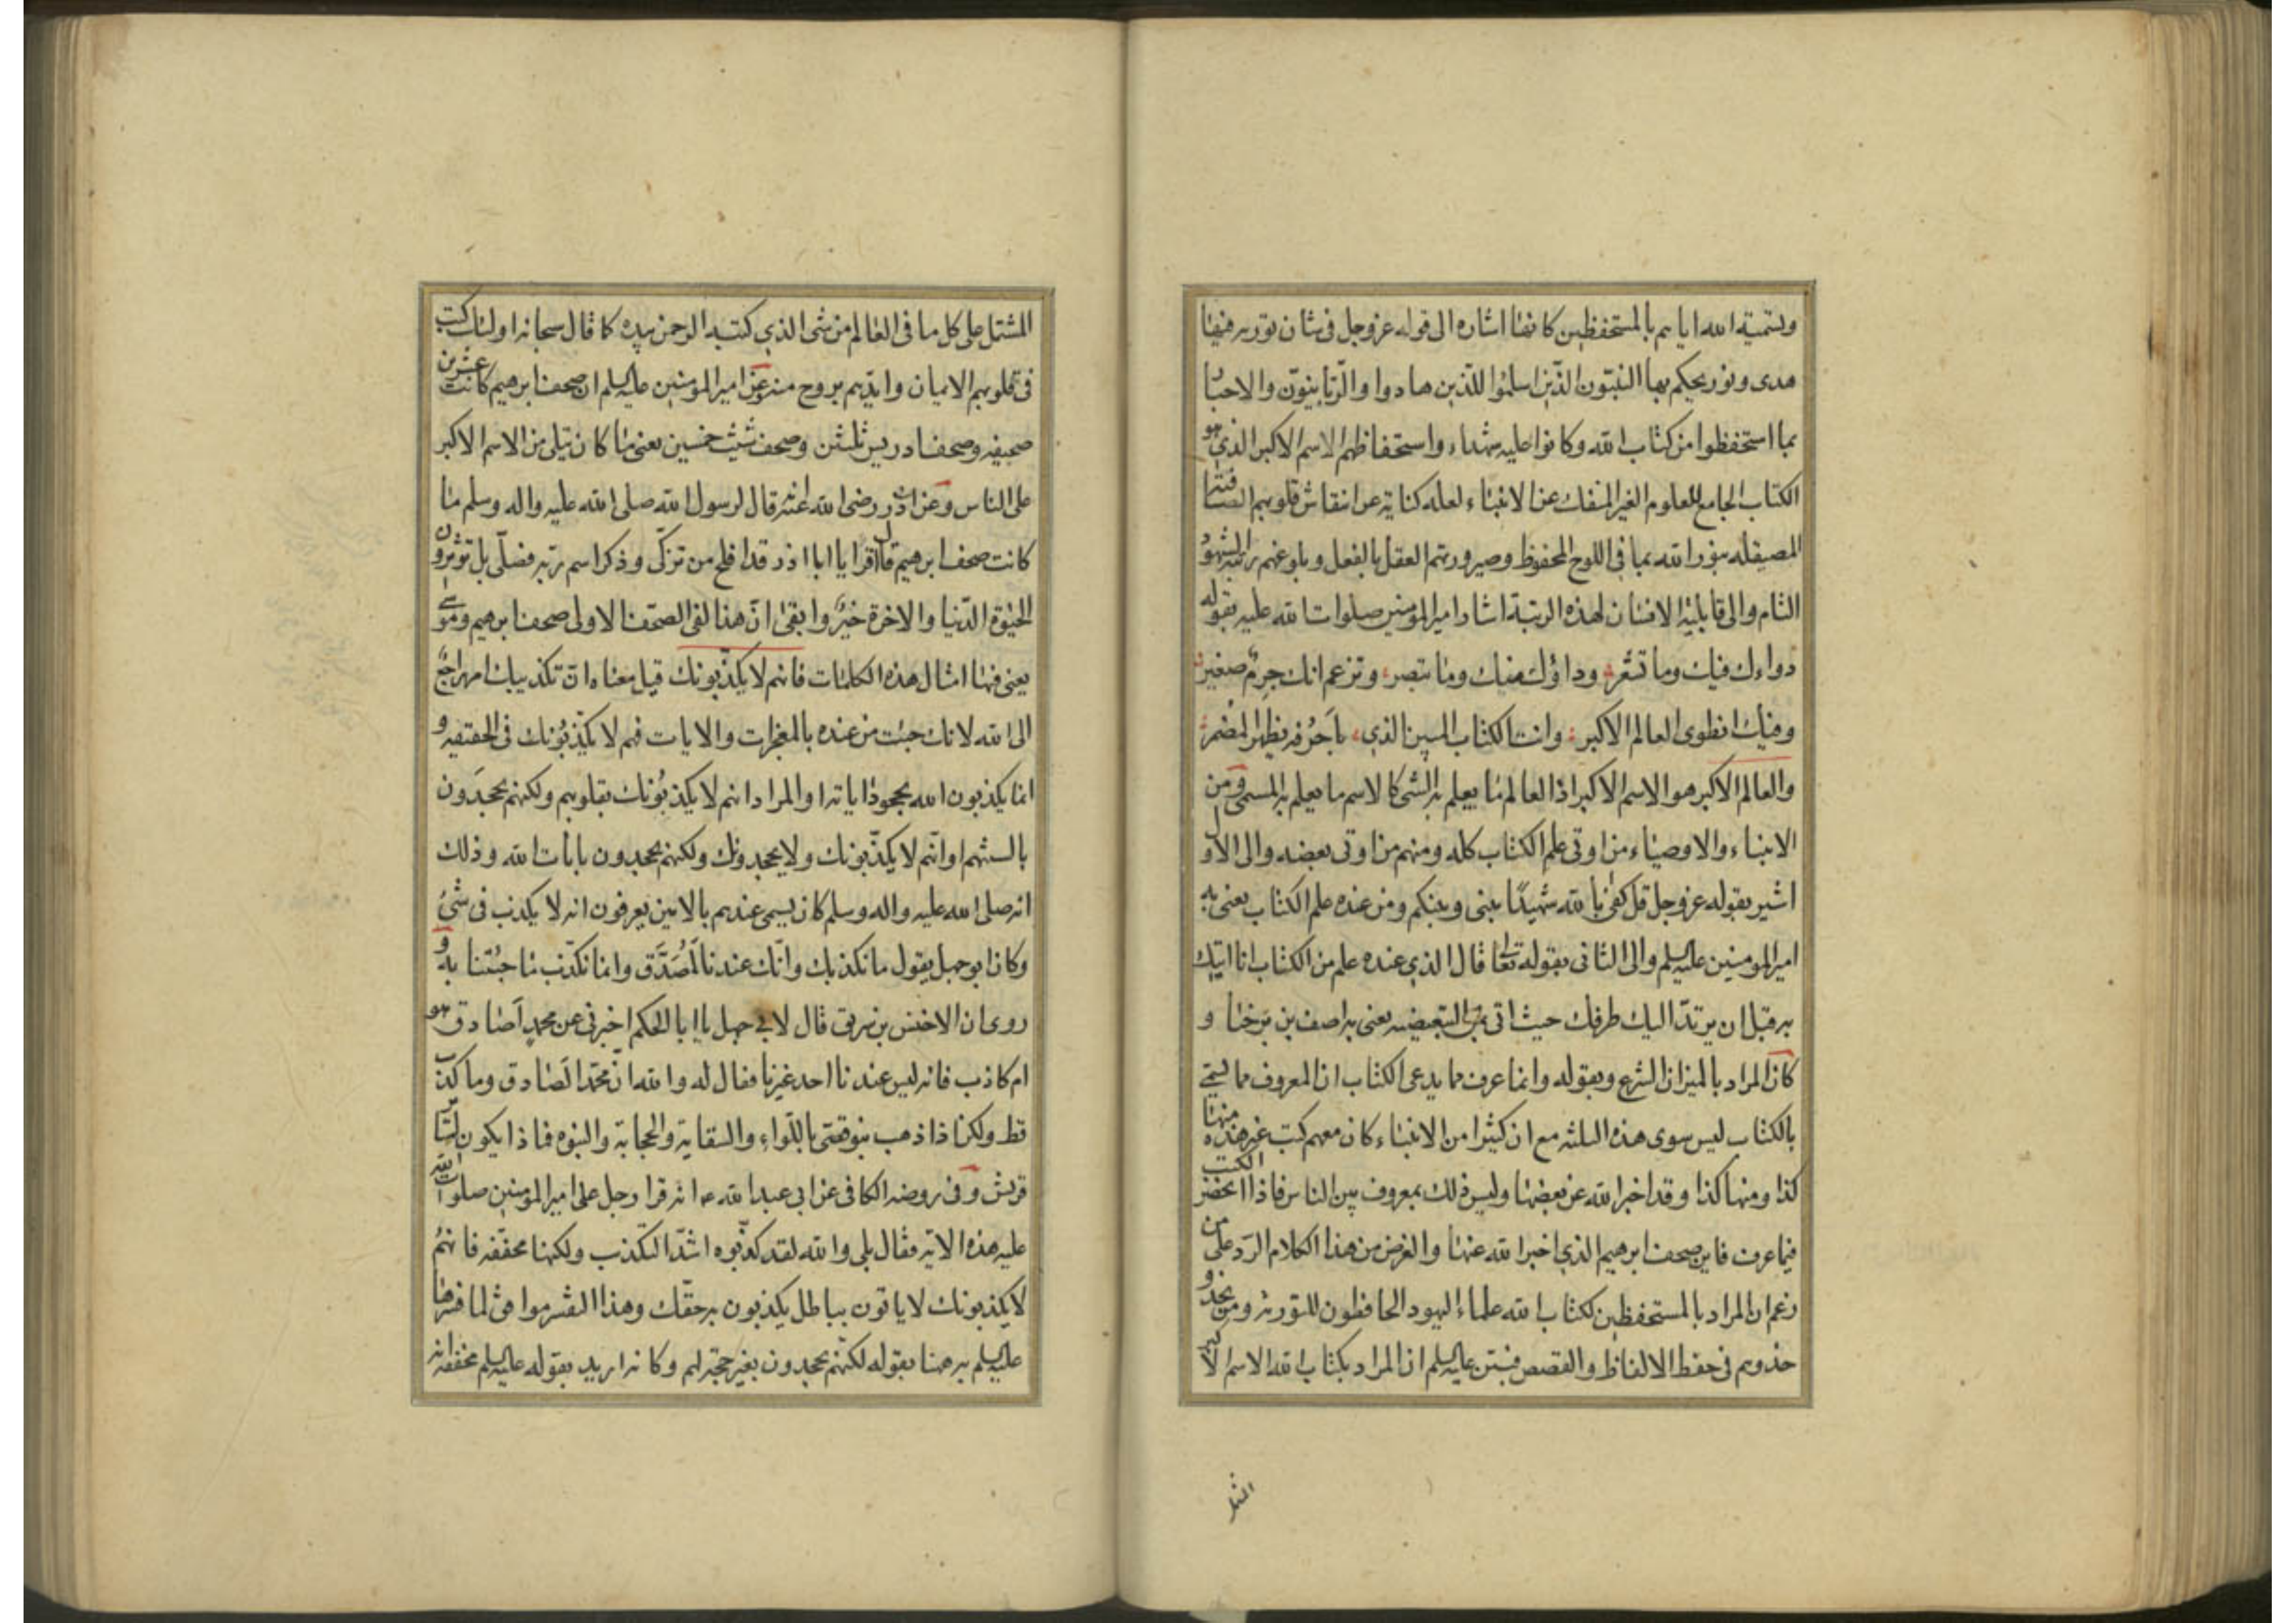 وتسمية الله اياهم بالمستحفظين كانها اشارة الى قوله عزوجل فى شان تورية فيها
هدى ونور يحكم بها النبيون الذين اسلموا للذين هادوا والربانيون والاحبار
بما استحفظوا من كتاب الله وكانوا عليه شهداء واستحفاظهم الاسم الاكبر الذي هو
الكتاب الجامع للعلوم الغير المنفك عن الانبياء لعله كناية عن انتقاش قلوبهم الصافية
المصيقله بنور الله بما فى اللوح المحفوظ وصيرورتهم العقل بالفعل وبلوغهم رتبة الشهود
التام والى قابلية الانسان لهذه الرتبة اشار امير المؤمنين صلوات الله عليه بقوله
دواءك فيك وما تشعر وداؤك منك وما تبصر وتزعم انك جرم صغير
وفيك انطوى العالم الاكبر وانت الكتاب المبين الذي باحرفه يظهر المضمر
والعالم الاكبر هو الاسم الاكبر اذ العالم ما يعلم به الشي كالاسم ما يعلم به المسمى ومن
الانبياء والاوصياء من اوتى علم الكتاب كله ومنهم من اوتى بعضه والى الاول
اشير بقوله عزوجل قل كفى بالله شهيدا بينى وبينكم ومن عنده علم الكتاب يعنى به
امير المومنين عليه السلم والى الثانى بقوله تعا قال الذي عنده علم من الكتاب انا اتيك
به قبل ان يرتد اليك طرفك حيث اتى بمن التبعيضيه يعنى به اصف بن برخيا و
كان المراد بالميزان الشرع وبقوله وانما عرف مما يدعى الكتاب ان المعروف مما يسمى
بالكتاب ليس سوى هذه الثلثه مع ان كثيرا من الانبياء كان معهم كتب غير هذه منها
كذا ومنها كذا وقد اخبر الله عن بعضها وليس ذلك بمعروف بين الناس فاذا انحصر الكتب
فيما عرف فاين صحف ابرهيم الذي اخبر الله عنها والغرض من هذا الكلام الرد على من
زعم ان المراد بالمستحفظين لكتاب الله علماء اليهود الحافظون للتورية ومن يحذو
حذوهم فى حفظ الالفاظ والقصص فبين عليه السلم ان المراد بكتاب الله الاسم الاكبر
المشتمل على كل ما فى العالم من شى الذي كتبه الرحمن بيده كما قال سبحانه اولئك كتب
فى قلوبهم الايمان وايدهم بروح منه وعن امير المؤمنين عليه السلم ان صحف ابرهيم كانت عشرين
صحيفه وصحف ادريس ثلثين وصحف شيث خمسين يعنى ما كان يتلى من الاسم الاكبر
على الناس وعن ابى ذر رضى الله عنه قال لرسول الله صلى الله عليه واله وسلم ما
كانت صحف ابرهيم قال اقرا يا ابا اذر قد افلح من تزكى وذكر اسم ربه فصلى بل تؤثرون
الحيوة الدنيا والاخرة خير وابقى ان هذا لفى الصحف الاولى صحف ابرهيم وموسى
يعنى فيها امثال هذه الكلمات فانهم لا يكذبونك قيل معناه ان تكذيبك امر راجع
الى الله لانك جئت من عنده بالمعجزات والايات فهم لا يكذبونك فى الحقيقه و
انما يكذبون الله بجحود اياته او المراد انهم لا يكذبونك بقلوبهم ولكنهم يجحدون
بالسنتهم او انهم لا يكذبونك ولا يجحدونك ولكنهم يجحدون بايات الله وذلك
انه صلى الله عليه واله وسلم كان يسمى عندهم بالامين يعرفون انه لا يكذب فى شئ
وكان ابو جهل يقول ما نكذبك وانك عندنا لمصدق وانما نكذب ما جئتنا به و
روى ان الاخنس بن شريق قال لابي جهل يا ابا الحكم اخبرنى عن محمد اصادق هو
ام كاذب فانه ليس عندنا احد غيرنا فقال له والله ان محمدا لصادق وما كذب
قط ولكن اذا ذهب بنو قصى باللواء والسقاية والحجابة والنبوه فماذا يكون لسائر
قريش وفى روضه الكافى عن ابى عبد الله ع انه قرا رجل على امير المؤمنين صلوات الله
عليه هذه الاية فقال بلى والله لقد كذبوه اشد التكذيب ولكنها مخففه فانهم
لا يكذبونك لا ياتون بباطل يكذبون به حقك وهذا التفسير موافق لما فسرها
عليه السلم به هنا بقوله لكنهم يجحدون بغير حجة لهم وكانه اريد بقوله عليه السلم مخففه انه